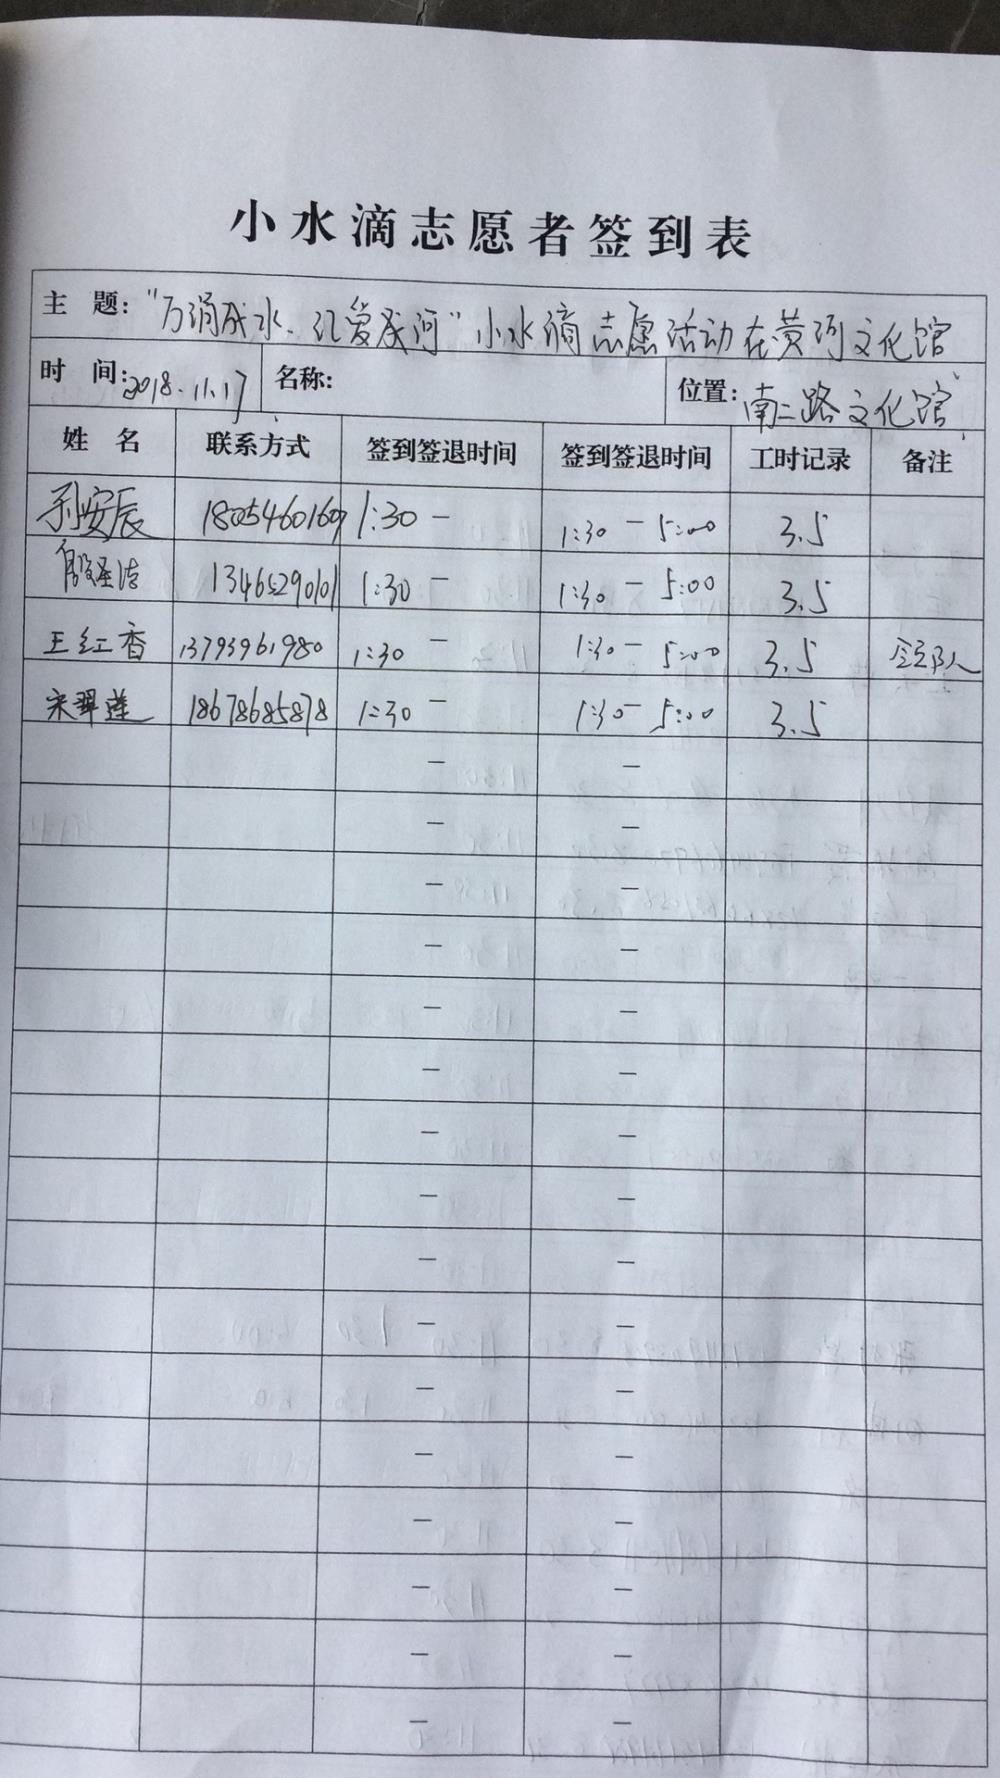 小水滴志愿者签到表
主 题: "万涓成水、汇爱成河"小水滴志愿活动在黄河文化馆
时 间: 2018.11.17 名称: 位置: 南二路文化馆
姓 名 联系方式 签到签退时间 签到签退时间 工时记录 备注
孙安辰 1805460169 1:30 - 1:30 - 5:00 3.5
殷圣洁 13465290101 1:30 - 1:30 - 5:00 3.5
王红香 13793961980 1:30 - 1:30 - 5:00 3.5 领队人
宋翠莲 18678685878 1:30 - 1:30 - 5:00 3.5